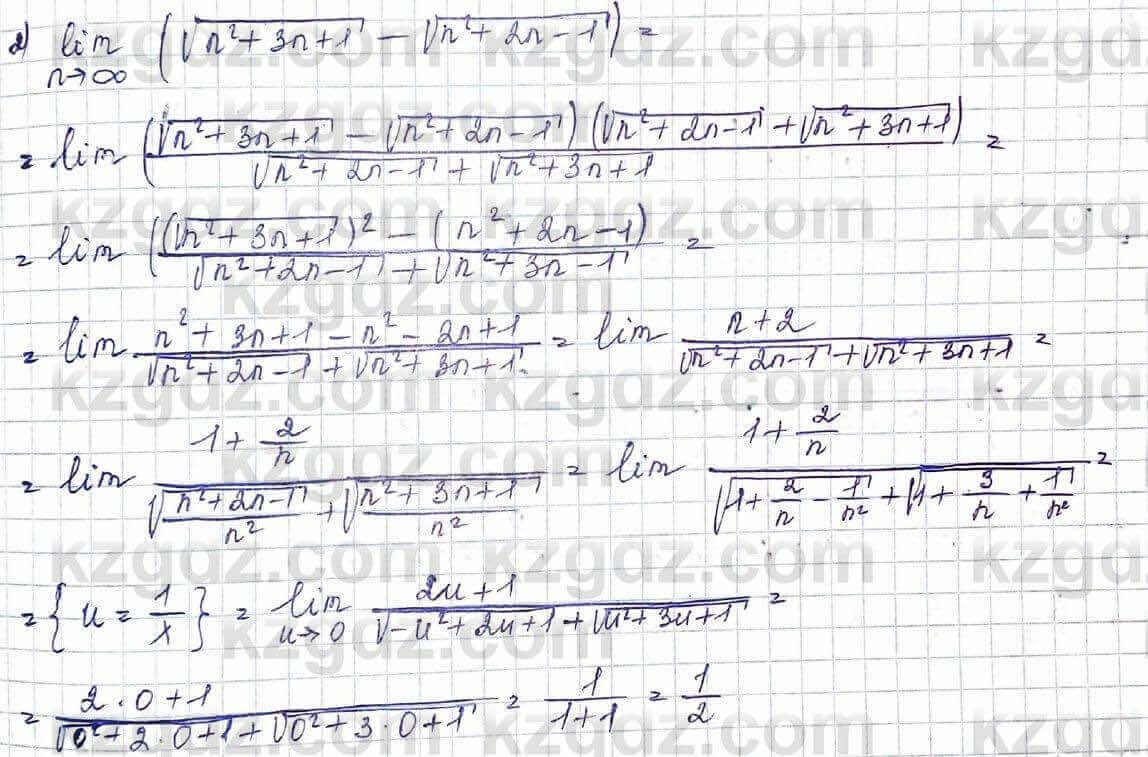 2) lim n→∞ (√(n²+3n+1) − √(n²+2n−1)) =
= lim ((√(n²+3n+1) − √(n²+2n−1)) (√(n²+2n−1) + √(n²+3n+1)) / (√(n²+2n−1) + √(n²+3n+1))) =
= lim ((√(n²+3n+1))² − (n²+2n−1)) / (√(n²+2n−1) + √(n²+3n−1)) =
= lim (n²+3n+1−n²−2n+1) / (√(n²+2n−1) + √(n²+3n+1)) = lim (n+2) / (√(n²+2n−1) + √(n²+3n+1)) =
= lim (1+2/n) / (√((n²+2n−1)/n²) + √((n²+3n+1)/n²)) = lim (1+2/n) / (√(1+2/n−1/n²) + √(1+3/n+1/n²)) =
= {u = 1/x} = lim u→0 (2u+1) / (√(−u²+2u+1) + √(u²+3u+1)) =
= (2·0+1) / (√(0²+2·0+1) + √(0²+3·0+1)) = 1/(1+1) = 1/2
kzgdz.com